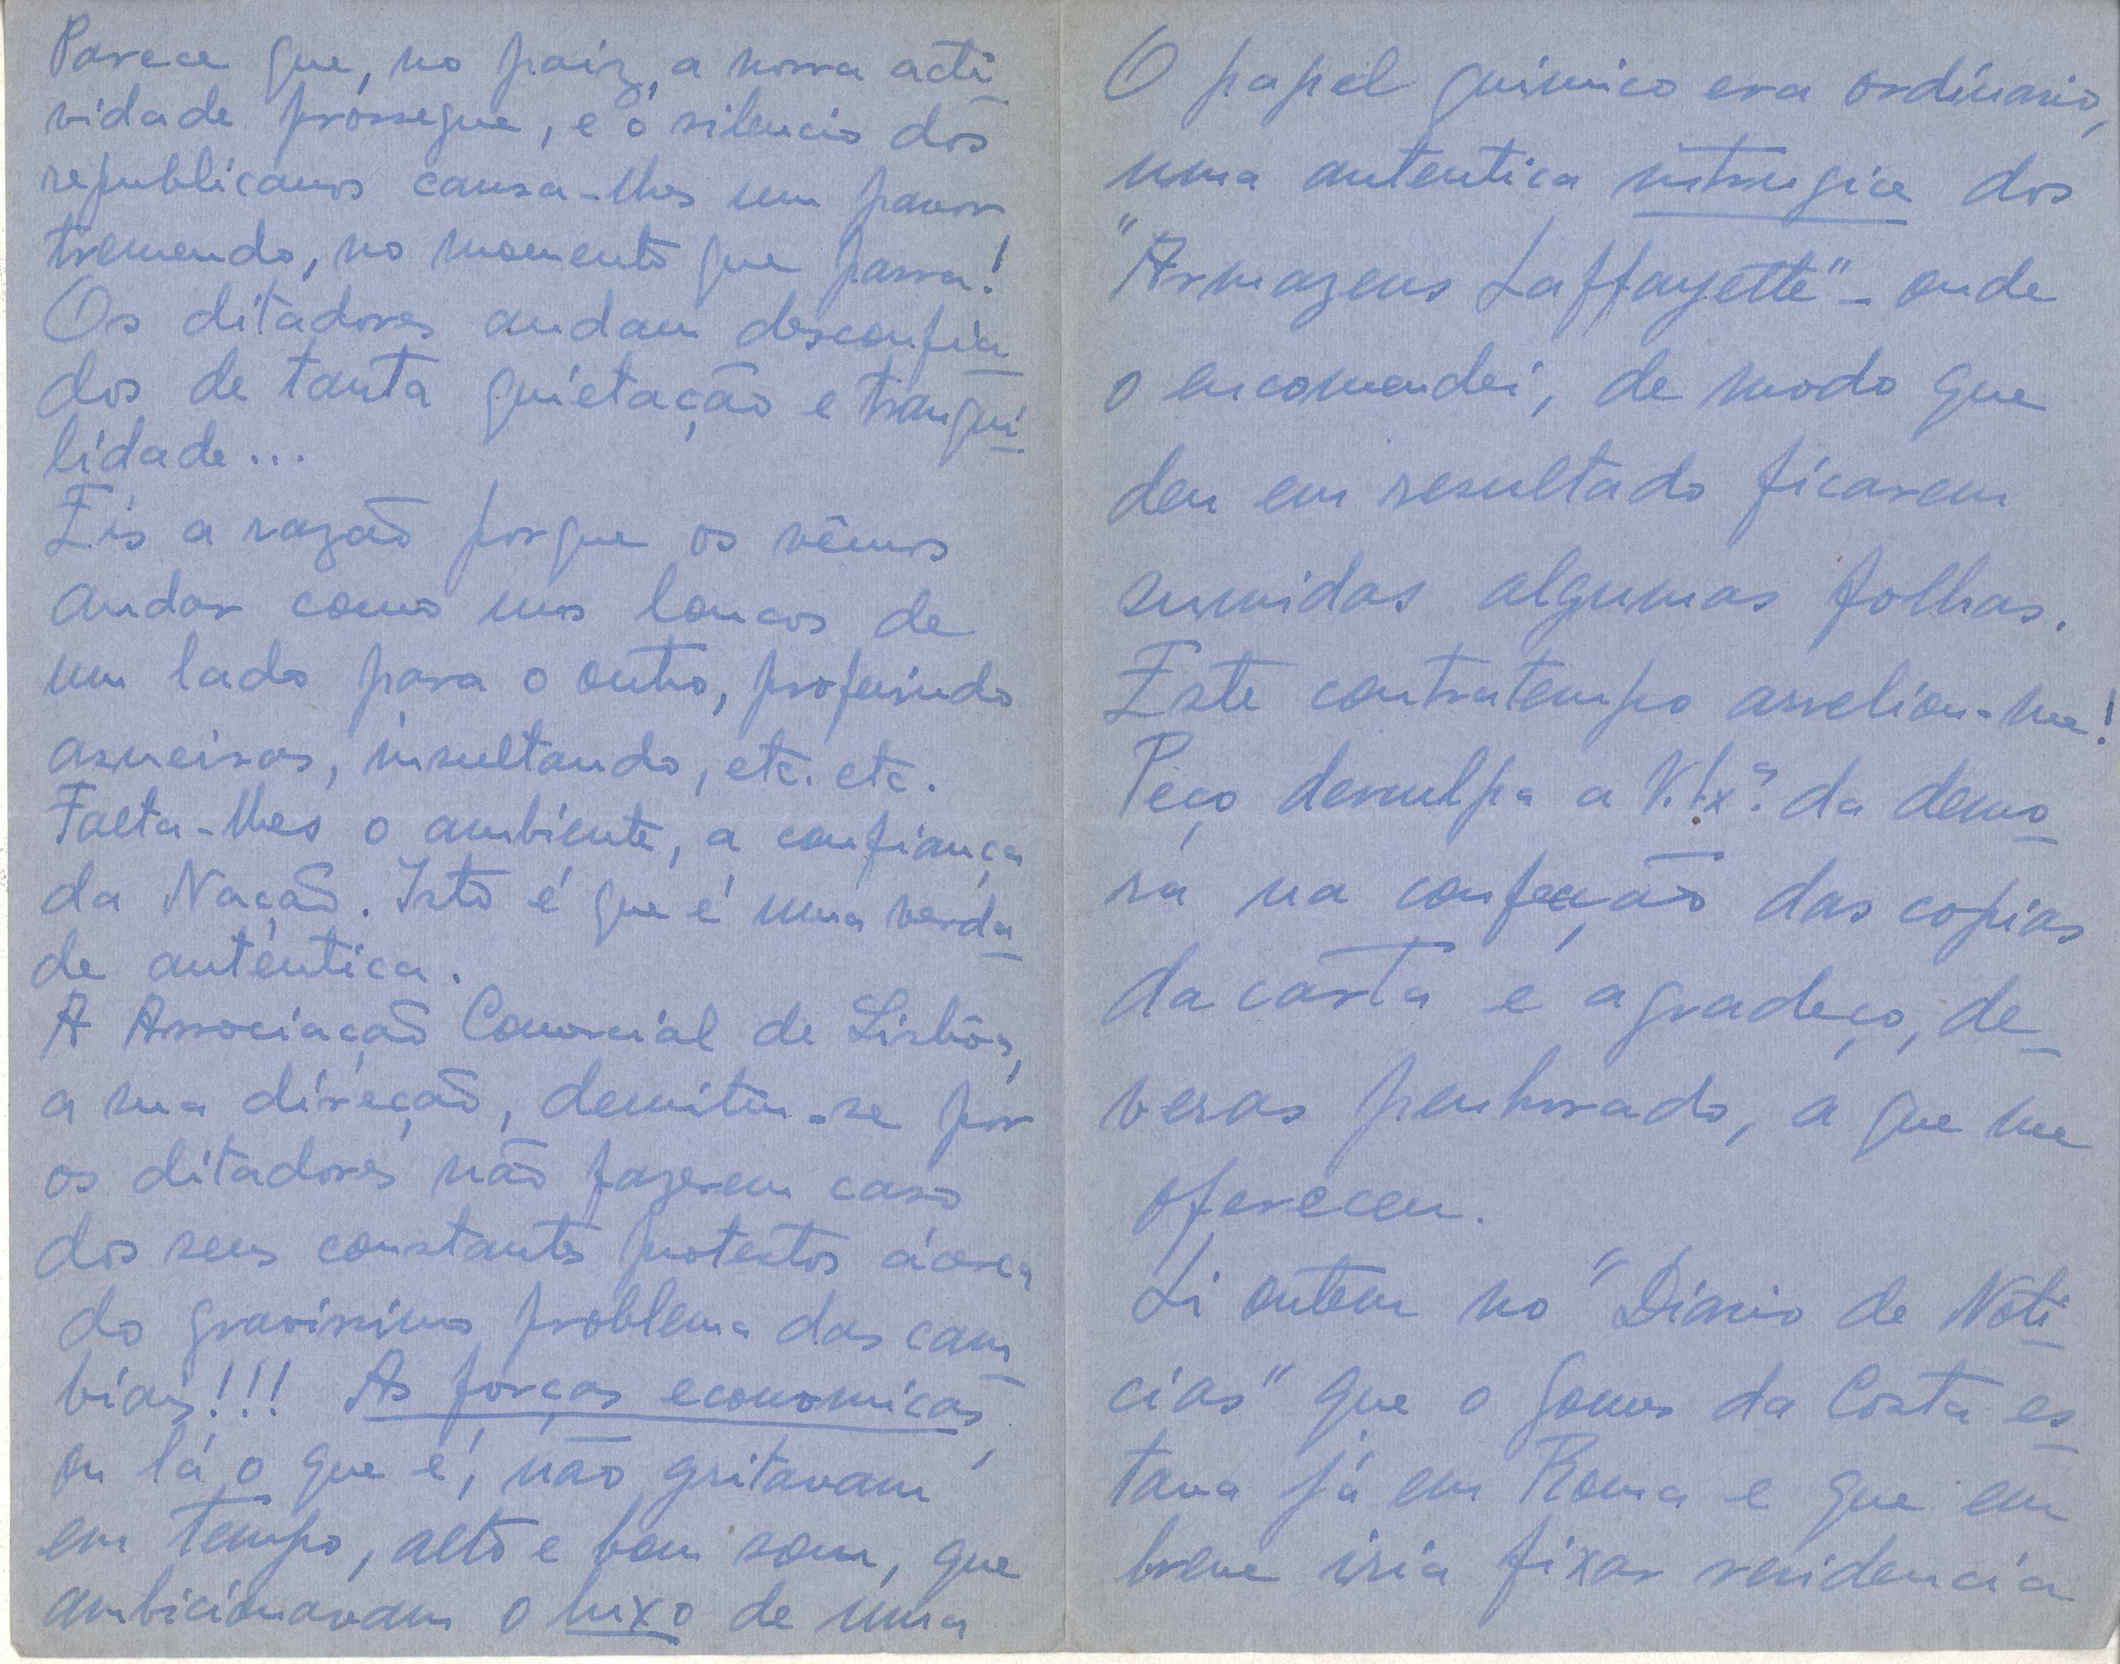 Parece que, no paiz, a nossa acti-
vidade prossegue, e o silencio dos
republicanos causa-lhes um pavor
tremendo, no momento que passa!
Os ditadores andam desconfia-
dos de tanta quietação e tranqui-
lidade...
Eis a razão porque os vêmos
andar como uns loucos de
um lado para o outro, proferindo
asneiras, insultando, etc. etc.
Falta-lhes o ambiente, a confiança
da Nação. Isto é que é uma verda-
de autêntica.
A Associação Comercial de Lisbôa,
a sua direcção, demitiu-se por
os ditadores não fazerem caso
dos seus constantes protestos ácerca
do gravissimo problema das cam-
biais!!! As forças economicas,
ou lá o que é, não gritavam
em tempo, alto e bom som, que
ambicionavam o luxo de uma
O papel quimico era ordinario,
uma autentica intrugice dos
"Armazens Laffayette" - onde
o encomendei, de modo que
deu em resultado ficarem
sumidas algumas folhas.
Este contratempo arreliou-me!
Peço desculpa a V. Ex.ª da demo-
ra na confecção das copias
da carta e agradeço, de-
veras penhorado, a que me
ofereceu.
Li ontem no "Diario de Noti-
cias" que o Gomes da Costa es-
tava já em Roma e que em
breve iria fixar residencia